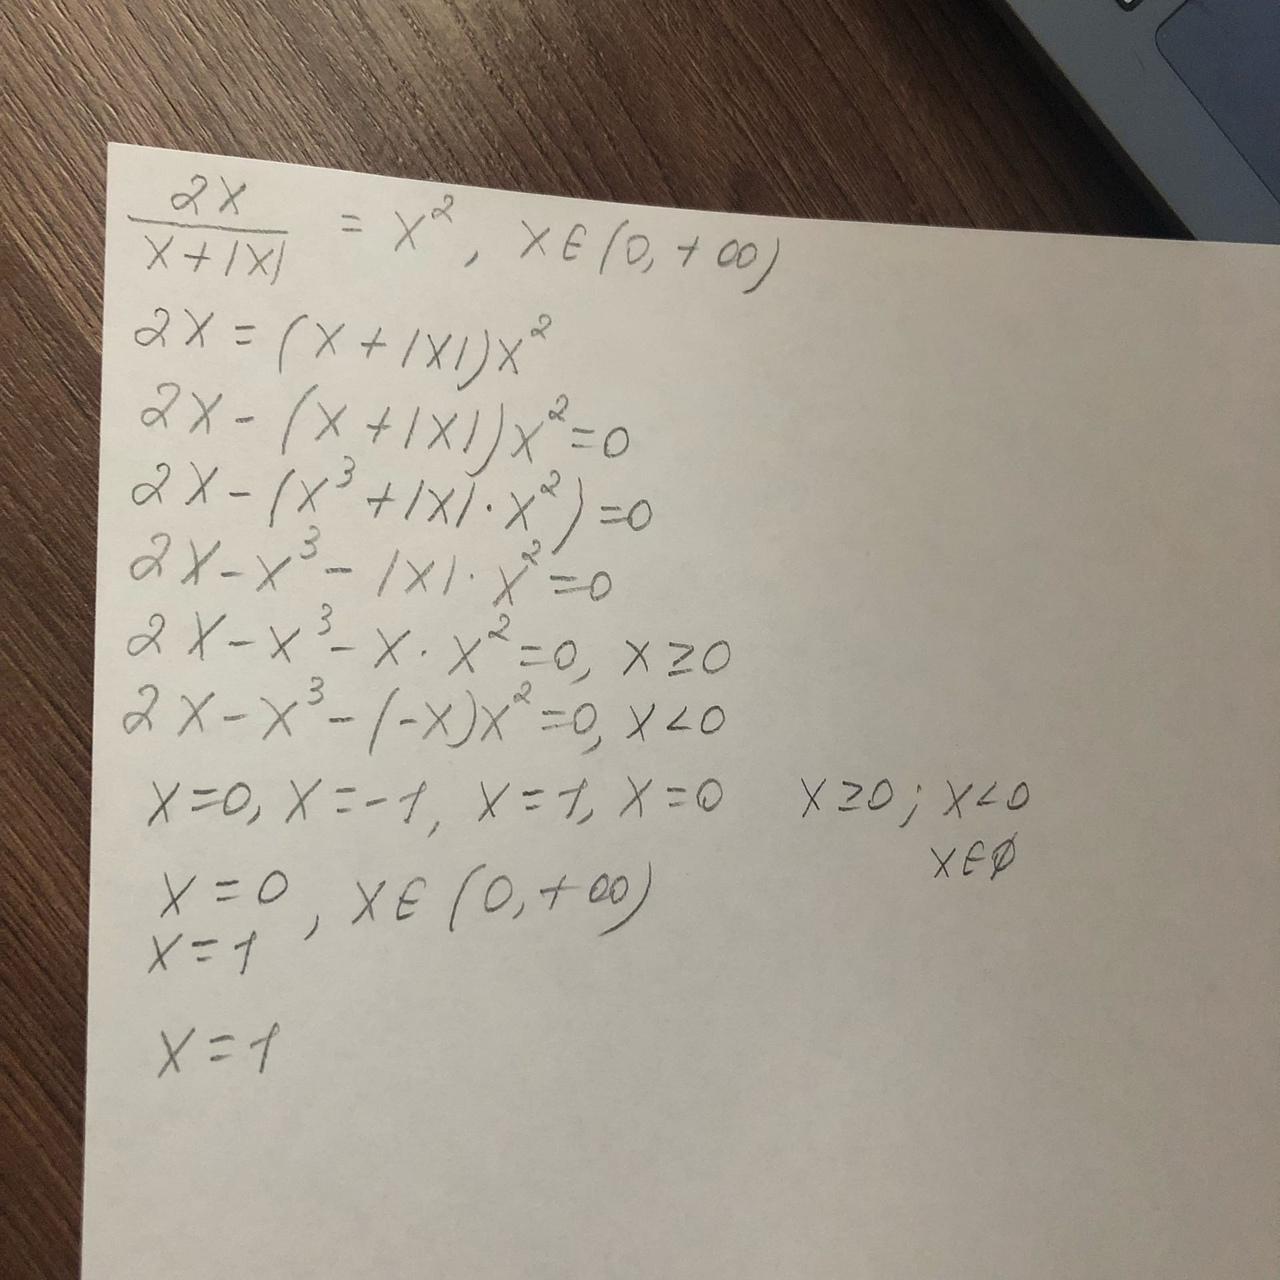 2x / (x+|x|) = x², x∈(0,+∞)
2x=(x+|x|)x²
2x-(x+|x|)x²=0
2x-(x³+|x|·x²)=0
2x-x³-|x|·x²=0
2x-x³-x·x²=0, x≥0
2x-x³-(-x)x²=0, x<0
x=0, x=-1, x=1, x=0 x≥0; x<0
x∈∅
x=0, x∈(0,+∞)
x=1
x=1